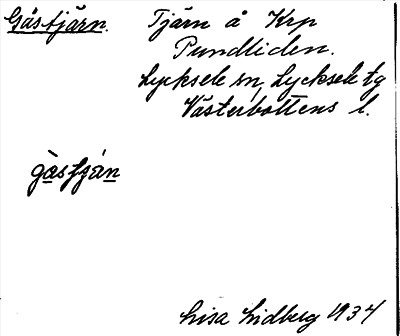 Gåstjärn. Tjärn å Krp
Pundliden.
Lycksele sn, Lycksele tg
Västerbottens l.
gåsʃjàn
Lisa Lidberg 1934